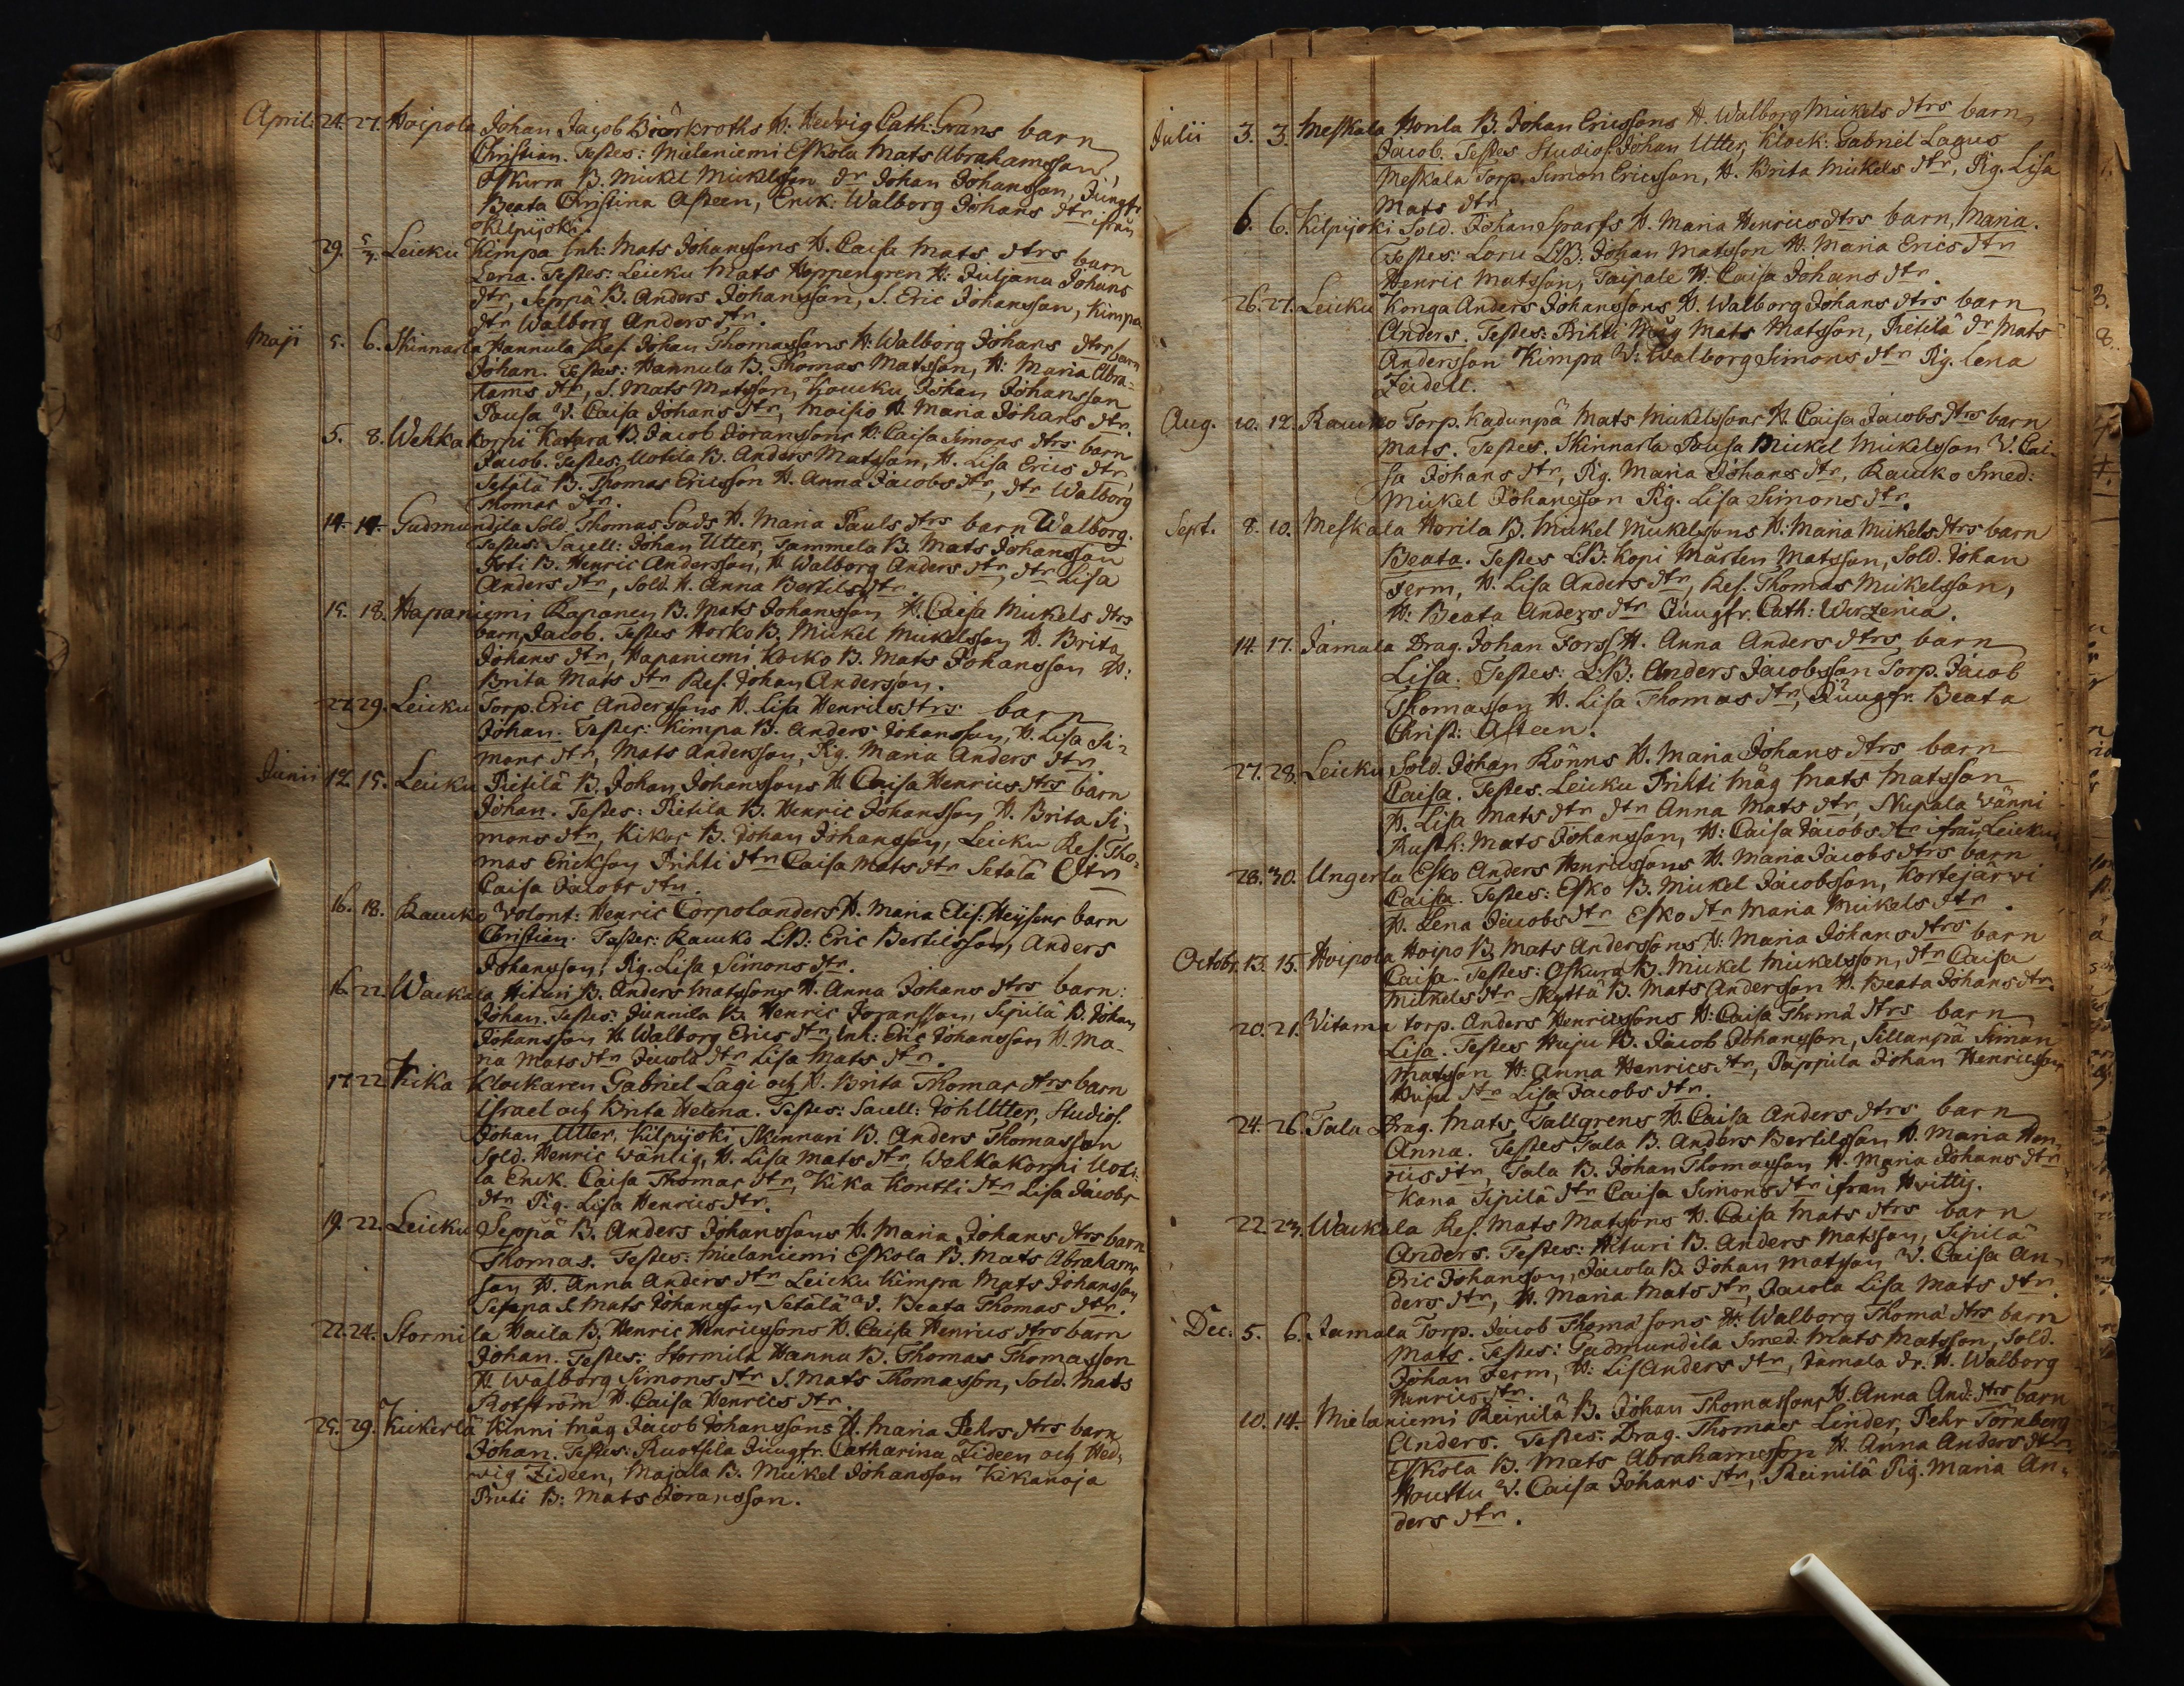 April: 24. 27. Hoipola Johan Jacob Biörkroths H: Hedvig Cath: Grans barn
Christian. Testes: Mielaniemi Eskola Mats Abrahamsson,
Oskura B. Mickel Mickelsson dr Johan Johansson, Jungfr
Beata Christina Asteen, Enck: Walborg Johans dtr ifrån
Kilpijoki.
29. 5/7. Leicku Kimpa Inh: Mats Johanssons H. Caisa Mats dtrs barn
Lena. Testes: Leicku Mats Heppengren H: Juljana Johans
dtr, Seppä B. Anders Johansson, S. Eric Johansson, Kimpa
dtr Walborg Anders dtr.
Maji 5. 6. Skinnarla Hannula Ref. Johan Thomassons H: Walborg Johans dtrs barn
Johan. Testes: Hannula B. Thomas Matsson, H: Maria Abra=
hams dtr, S. Mats Matsson, Koucku Johan Johansson
Pousa V. Caisa Johans dtr, Moisio H. Maria Johans dtr.
5. 8. Wehkakorpi Katara B. Jacob Joranssons H: Caisa Simons dtrs barn
Jacob. Testes: Uotila B. Anders Matsson, H. Lisa Erics dtr,
Setälä B. Thomas Ericsson H. Anna Jacobs dtr, dtr Walborg
Thomas dtr.
14. 14. Gudmundila Sold. Thomas Gads H. Maria Pauls dtrs barn Walborg.
Testes: Sacell: Johan Utter, Tammela B. Mats Johansson
Isti B. Henric Andersson, H Walborg Anders dtr, dtr Lisa
Anders dtr, Sold. H. Anna Bertils dtr.
15. 18. Hapaniemi Rapanen B. Mats Johansson H. Caisa Mickels dtrs
barn, Jacob. Testes Horko B. Mickel Mickelsson H. Brita
Johans dtr, Hapaniemi Kocko B. Mats Johansson H:
Brita Mats dtr Ref. Johan Andersson.
27. 29. Leicku Torp. Eric Anderssons H. Lisa Henrics dtrs barn
Johan. Testes: Kimpa B. Anders Johansson, H. Lisa Si=
mons dtr, Mats Andersson, Pig. Maria Anders dtr
Junii 12. 15. Leicku Pietilä B. Johan Johanssons H Caisa Henrics dtrs barn
Johan. Testes: Pietila B. Henric Johansson H. Brita Si=
mons dtr, Kikos B. Johan Johansson, Leicku Ref. Tho=
mas Erickson Prihti dtr Caisa Mats dtr Setälä dtr
Caisa Jacobs dtr.
16. 18. Raucko Volont: Henric Corpolanders H. Maria Elis. Heysens barn
Christian. Testes: Raucko L.B: Eric Bertilsson, Anders
Johansson, Pig. Lisa Simons dtr.
16. 22. Wackala Hituri B. Anders Matssons H. Anna Johans dtrs barn:
Johan. Testes: Junnila B. Henric Joransson, Sipilä B. Johan
Johansson H Walborg Erics dtr, Inh: Eric Johansson H. Ma-
ria Mats dtr Jacola dtr Lisa Mats dtr.
17. 22 Kika Klockaren Gabriel Lagi och H. Brita Thomas dtrs barn
Israel och Brita Helena. Testes: Sacell: Joh Utter, Studios.
Johan Utter, Kilpijoki Skinnari B. Anders Thomasson
Sold. Henric Wänlig, H. Lisa Mats dtr, Wehkakorni Uoti=
la Enck. Caisa Thomas dtr, Kika Kontti dtr Lisa Jacobs
dtr Pig. Lisa Henrics dtr.
19. 22. Leicku Seppä B. Anders Johanssons H. Maria Johans dtrs barn
Thomas. Testes: Mielaniemi Eskola B. Mats Abrahams
son H. Anna Anders dtr Leicku Kimpra Mats Johansson
Seppa S Mats Johansson Setälä V. Beata Thomas dtr.
22. 24. Stormila Haila B. Henric Henricssons H. Caisa Henrics dtrs barn
Johan. Testes: Stormila Hannu B. Thomas Thomasson
H. Walborg Simons dtr S. Mats Thomasson, Sold. Mats
Rotström H. Caisa Henrics dtr.
25. 29. Kickerlä Kinni Måg Jacob Johanssons H. Maria Pehrs dtrs barn
Johan. Testes: Ruotsila Jungfr. Catharina Zideen och Hed=
wig Zideen, Majala B. Mickel Johansson Kikanoja
Pruti B: Mats Joransson.
Julii 3. 3. Meskala Horila B. Johan Ericssons H. Walborg Mickels dtrs barn,
Jacob. Testes Studios. Johan Utter, Klock: Gabriel Lagus
Meskala Torp. Simon Ericsson, H. Brita Mickels dtr, Pig. Lisa
Mats dtr
6. 6. Kilpijoki Sold. Johan Sparfs H. Maria Henrics dtrs barn, Maria.
Testes: Loru LB: Johan Matsson H. Maria Erics dtr
Henric Matsson, Taipale H. Caisa Johans dtr.
26. 27. Leicku Konga Anders Johanssons H. Walborg Johans dtrs barn
Anders. Testes: Prihti Måg Mats Matsson, Pietilä dr Mats
Andersson Kimpa V: Walborg Simons dtr Pig. Lena
Zeidell.
Aug. 10. 12. Raucko Torp. Kadunpä Mats Mickelssons H. Caisa Jacobs dtrs barn
Mats. Testes. Skinnarla Pousa Mickel Mickelsson V. Cai-
sa Johans dtr, Pig. Maria Johans dtr, Raucko Smed:
Mickel Johansson Pig. Lisa Simons dtr.
Sept. 8. 10. Meskala Horila B. Mickel Mickelssons H: Maria Mickels dtrs barn
Beata. Testes L.B: Kopi Mårten Matsson, Sold. Johan
Ferm, H. Lisa Anders dtr, Ref. Thomas Mickelsson,
H: Beata Anders dtr Jungfr. Cath: Wirzenia.
14. 17. Jamala Drag. Johan Forss H. Anna Anders dtrs barn
Lisa. Testes: L.B: Anders Jacobsson Torp. Jacob
Thomasson H. Lisa Thomas dtr, Jungfr. Beata
Christ: Asteen.
27. 28. Leicku Sold. Johan Rönns H. Maria Johans dtrs barn
Caisa. Testes. Leicku Prihti Måg Mats Matsson
H. Lisa Mats dtr dtr Anna Mats dtr, Nupala Vänni
Rusth: Mats Johansson, H: Caisa Jacobs dtr ifrån Leicku
28. 30. Ungerla Esko Anders Henricssons H. Maria Jacobs dtrs barn
Caisa. Testes: Esko B. Mickel Jacobsson, Kortejärwi
H. Lena Jacobs dtr Esko dtr Maria Mickels dtr.
Octobr. 13. 15. Hoipola Hoipo B. Mats Anderssons H: Maria Johans dtrs barn
Caisa. Testes: Oskura B. Mickel Mickelsson, dtr Caisa
Mickels dtr Skyttä B. Mats Andersson H. Beata Johans dtr.
20. 21. Vitama torp. Anders Henricssons H: Caisa Thomä dtrs barn
Lisa. Testes Huju B. Jacob Johansson, Sillanpä Simon
Matsson H: Anna Henrics dtr, Pappila Johan Henricsson
Huju dtr Lisa Jacobs dtr.
24. 26. Tala Drag. Mats Tallgrens H. Caisa Anders dtrs barn
Anna. Testes Tala B. Anders Bertilsson H. Maria Hen=
rics dtr, Tala B. Johan Thomasson H. Maria Johans dtr
Kana Sipilä dtr Caisa Simons dtr ifrån Hvittis.
22. 23. Wackala Ref. Mats Matssons H. Caisa Mats dtrs barn
Anders. Testes: Hituri B. Anders Matsson, Sipilä
Eric Johansson, Jacola B. Johan Matsson V. Caisa An=
ders dtr, H. Maria Mats dtr, Jacola Lisa Mats dtr.
Dec: 5. 6. Jamala Torp. Jacob Thomä sons H: Walborg Thomä dtrs barn
Mats. Testes: Gudmundila Smed. Mats Matsson, Sold.
Johan Ferm, H: Lis Anders dtr, Jamala dr. H. Walborg
Henrics dtr.
10. 14. Mielaniemi Reinilä B. Johan Thomassons H. Anna And: dtrs barn
Anders. Testes. Drag. Thomas Linder, Pehr Törnberg
Eskola B. Mats Abrahamsson H. Anna Anders dtr
Houttu V. Caisa Johans dtr, Reinilä Pig. Maria An=
ders dtr.